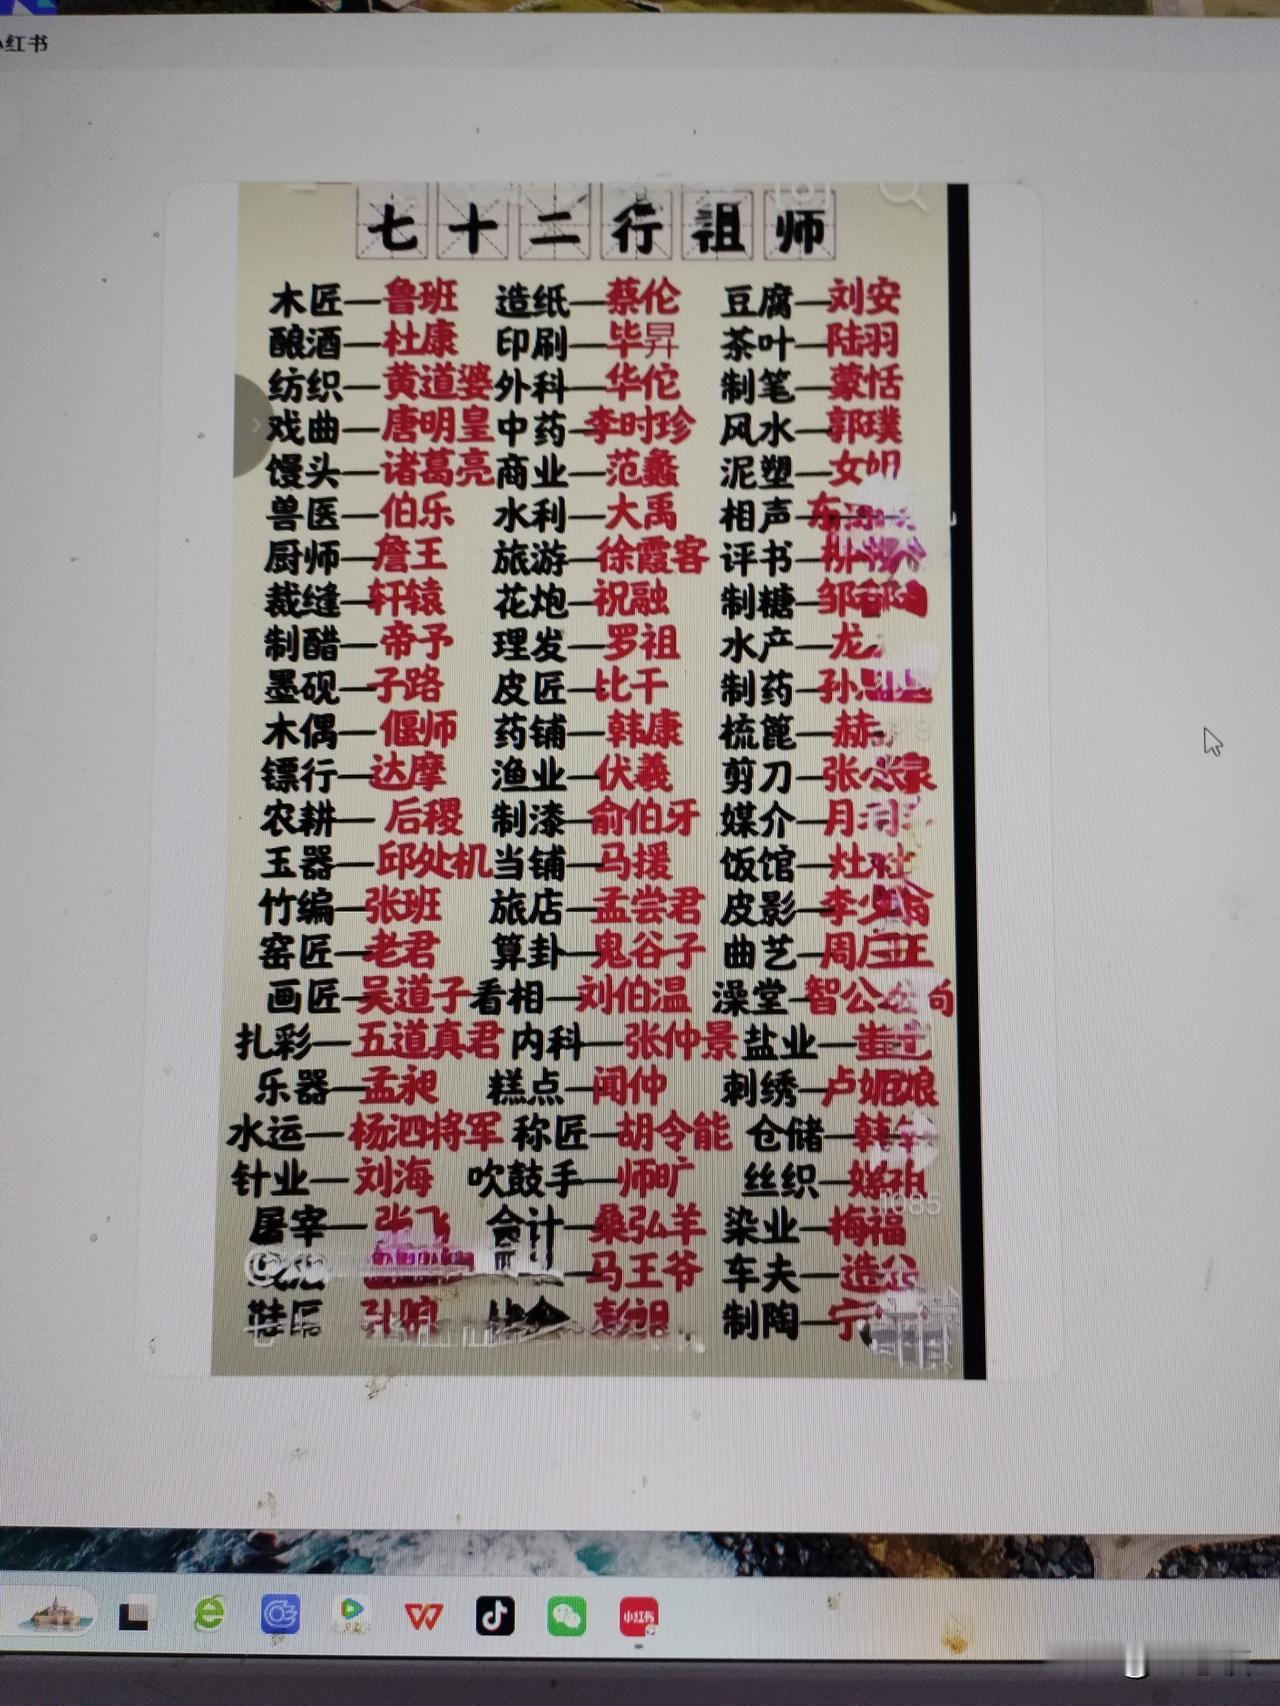 小红书
七十二行祖师
木匠—鲁班 造纸—蔡伦 豆腐—刘安
酿酒—杜康 印刷—毕昇 茶叶—陆羽
纺织—黄道婆 外科—华佗 制笔—蒙恬
戏曲—唐明皇 中药—李时珍 风水—郭璞
馒头—诸葛亮 商业—范蠡 泥塑—女
兽医—伯乐 水利—大禹 相声—东
厨师—詹王 旅游—徐霞客 评书—
裁缝—轩辕 花炮—祝融 制糖—邹
制醋—帝予 理发—罗祖 水产—龙
墨砚—子路 皮匠—比干 制药—孙
木偶—偃师 药铺—韩康 梳篦—赫
镖行—达摩 渔业—伏羲 剪刀—张
农耕—后稷 制漆—俞伯牙 媒介—月
玉器—邱处机 当铺—马援 饭馆—灶
竹编—张班 旅店—孟尝君 皮影—李少翁
窑匠—老君 算卦—鬼谷子 曲艺—周庄王
画匠—吴道子 看相—刘伯温 澡堂—智公
扎彩—五道真君 内科—张仲景 盐业—
乐器—孟昶 糕点—闻仲 刺绣—卢娘
水运—杨泗将军 称匠—胡令能 仓储—韩
针业—刘海 吹鼓手—师旷 丝织—嫘祖
屠宰—张飞 会计—桑弘羊 染业—梅福
—马王爷 车夫—造父
鞋匠 孙膑 彭祖 制陶—宁
1085
小红书